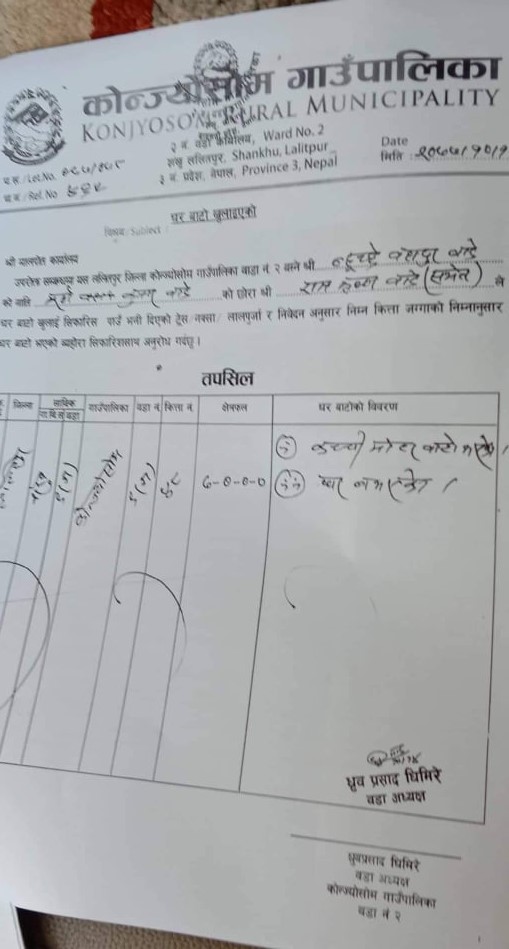 कोन्ज्योसोम गाउँपालिका
KONJYOSOM RURAL MUNICIPALITY
२ नं. वडा कार्यालय, Ward No. 2
शंखु ललितपुर, Shankhu, Lalitpur
३ नं. प्रदेश, नेपाल, Province 3, Nepal
Date
मिति
प.सं./Let.No.
च.नं./Rel.No
घर बाटो खुलाइएको
विषय/Subject
श्री मालपोत कार्यालय
उपरोक्त सम्बन्धमा यस ललितपुर जिल्ला कोन्ज्योसोम गाउँपालिका वाडा नं २ बस्ने श्री बहादुर
को नाति को छोरा श्री राम कृष्ण ले
घर बाटो खुलाई सिफारिस पाउँ भनी दिएको ट्रेस/नक्सा/लालपुर्जा र निवेदन अनुसार निम्न कित्ता जग्गाको निम्नानुसार
घर बाटो भएको ब्यहोरा सिफारिससाथ अनुरोध गर्दछु।
तपसिल
जिल्ला साविक गाउँपालिका वडा नं कित्ता नं. क्षेत्रफल घर बाटोको विवरण
गा.वि.स वडा
कोन्ज्योसोम ७-०-०-० (i) कच्ची मोटर बाटो भएको।
(ii) घर नभएको।
ध्रुव प्रसाद घिमिरे
वडा अध्यक्ष
ध्रुवप्रसाद घिमिरे
वडा अध्यक्ष
कोन्ज्योसोम गाउँपालिका
वडा नं २